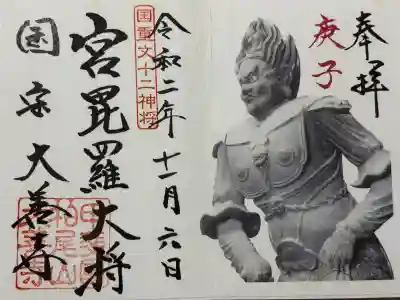 奉拝
庚子
令和二年十一月六日
国重文十二神将
宮毘羅大将
国宝大善寺
柏尾山